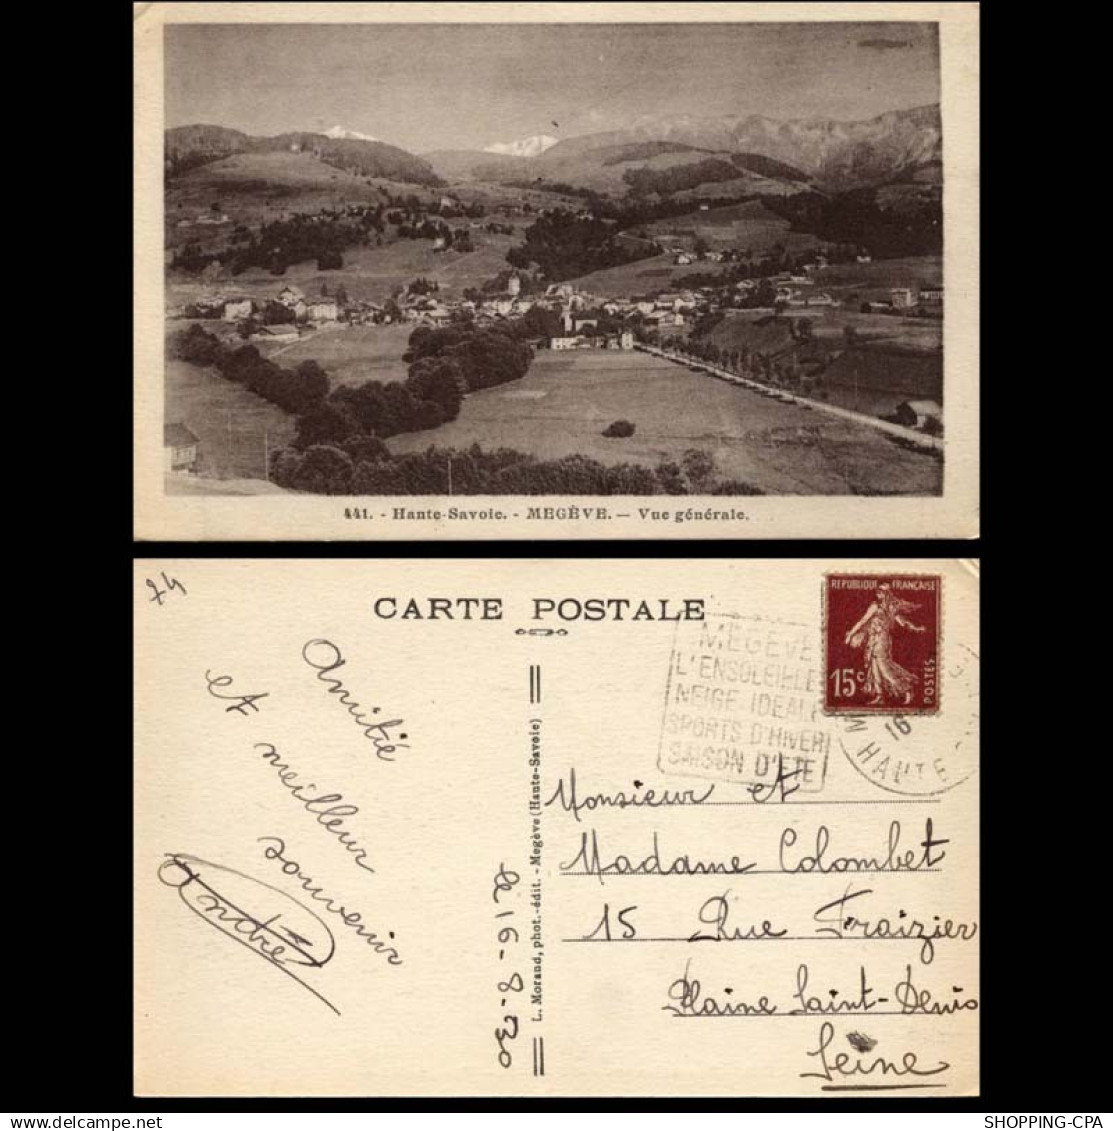 441. - Haute-Savoie. - MEGÈVE. — Vue générale.
74
CARTE POSTALE
REPUBLIQUE FRANÇAISE
15c
POSTES
MEGEVE
L'ENSOLEILLE
NEIGE IDEALE
SPORTS D'HIVER
SAISON D'ETE
16
HAUTE
Amitié
et meilleur
souvenir
André
L. Morand, phot.-édit. - Megève (Haute-Savoie)
le 16-8-30
Monsieur et
Madame Colombet
15 Rue Fraizier
Plaine Saint-Denis
Seine
SHOPPING-CPA